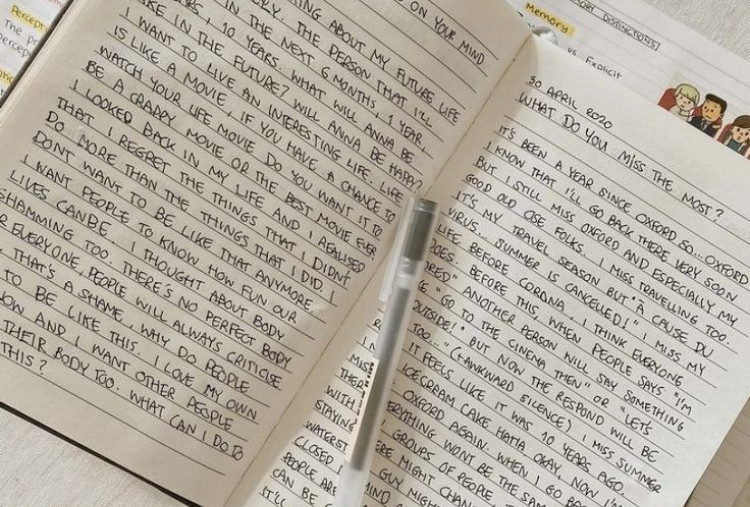 ON YOUR MIND
ABOUT MY FUTURE LIFE
THE PERSON THAT I'LL
IN THE NEXT 6 MONTHS, 1 YEAR,
10 YEARS. WHAT WILL ANNA BE
IN THE FUTURE? WILL ANNA BE HAPPY?
I WANT TO LIVE AN INTERESTING LIFE. LIFE
IS LIKE A MOVIE, IF YOU HAVE A CHANCE TO
WATCH YOUR LIFE MOVIE DO YOU WANT IT TO
BE A CRAPPY MOVIE OR THE BEST MOVIE EVER
I LOOKED BACK IN MY LIFE AND I REALISED
THAT I REGRET THE THINGS THAT I DIDNT
DO MORE THAN THE THINGS THAT I DID. I
DONT WANT TO BE LIKE THAT ANYMORE
I WANT PEOPLE TO KNOW HOW FUN OUR
LIVES CANBE. I THOUGHT ABOUT BODY
SHAMMING TOO. THERE'S NO PERFECT BODY
EVERYONE, PEOPLE WILL ALWAYS CRITICISE
THAT'S A SHAME, WHY DO PEOPLE
TO BE LIKE THIS. I LOVE MY OWN
AND I WANT OTHER PEOPLE
THEIR BODY TOO. WHAT CAN I DO TO
THIS?
Memory
vs. Explicit
30 APRIL 2020
WHAT DO YOU MISS THE MOST?
IT'S BEEN A YEAR SINCE OXFORD SO... OXFORD
I KNOW THAT I'LL GO BACK THERE VERY SOON
BUT I STILL MISS OXFORD AND ESPECIALLY MY
GOOD OLD OSE FOLKS. I MISS TRAVELLING TOO.
IT'S MY TRAVEL SEASON BUT "À CAUSE DU
VIRUS... SUMMER IS CANCELLED!" I MISS MY
LIFE BEFORE CORONA, I THINK EVERYONE
DOES. BEFORE THIS, WHEN PEOPLE SAYS "I'M
ANOTHER PERSON WILL SAY SOMETHING
"GO TO THE CINEMA THEN" OR "LET'S
OUTSIDE!" BUT NOW THE RESPOND WILL BE
TOO..." (+AWKWARD SILENCE) I MISS SUMMER
IT FEELS LIKE IT WAS 10 YEARS AGO.
ICECREAM CAKE HAHA OKAY, NOW I'M
OXFORD AGAIN. WHEN I GO
WONT BE THE
GROUPS OF PEOPLE
MIGHT
CLOSED
PEOPLE ARE
CAN BE
IT'LL